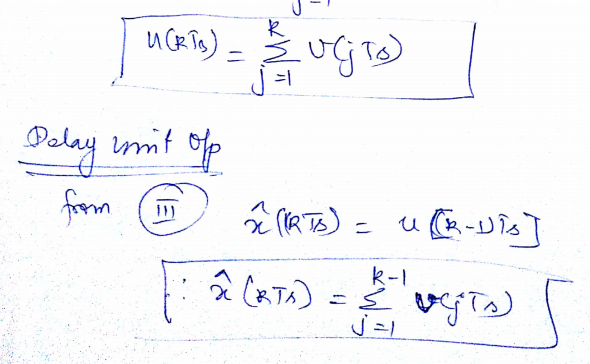 j=1
u(kTs) = \sum_{j=1}^{k} v(jTs)
Delay unit o/p
from (III) x̂(kTs) = u[(k-1)Ts]
∴ x̂(kTs) = \sum_{j=1}^{k-1} v(jTs)